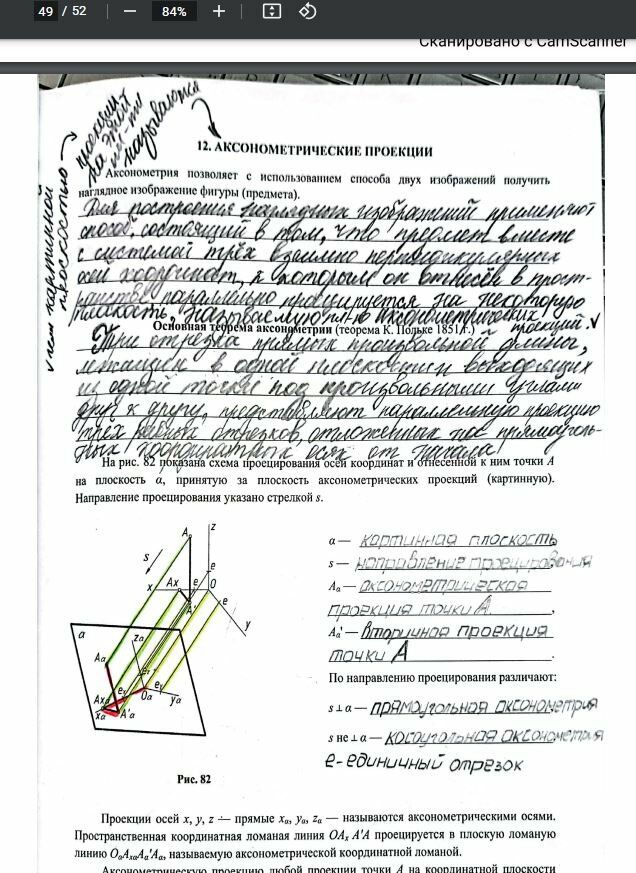 49 / 52
84%
Сканировано с CamScanner
проекции
на этой
пл-ти
называются
12. АКСОНОМЕТРИЧЕСКИЕ ПРОЕКЦИИ
Аксонометрия позволяет с использованием способа двух изображений получить
наглядное изображение фигуры (предмета).
Для построения наглядных изображений применяют
способ, состоящий в том, что предмет вместе
с системой трёх взаимно перпендикулярных
осей координат, к которым он отнесён в прост-
ранстве параллельно проецируется на некоторую
плоскость, называемую пл-ю аксонометрических
проекций. V
V чем картинной
плоскостью
Основная теорема аксонометрии (теорема К. Польке 1851 г.)
Три отрезка прямых произвольной длины,
лежащих в одной плоскости и выходящих
из одной точки под произвольными углами
друг к другу, представляют параллельную проекцию
трёх равных отрезков, отложенных на прямоуголь-
ных координатных осях от начала
На рис. 82 показана схема проецирования осей координат и отнесенной к ним точки A
на плоскость α, принятую за плоскость аксонометрических проекций (картинную).
Направление проецирования указано стрелкой s.
A
z
s
e
x
Ax
e
O
A'
e
y
α
zα
Aα
Oα
yα
Axα
xα
A'α
Рис. 82
α — картинная плоскость
s — направление проецирования
Aα — аксонометрическая
проекция точки A ,
Aα' — вторичная проекция
точки A
По направлению проецирования различают:
s ⊥ α — прямоугольная аксонометрия
s не ⊥ α — косоугольная аксонометрия
e - единичный отрезок
Проекции осей x, y, z — прямые xα, yα, zα — называются аксонометрическими осями.
Пространственная координатная ломаная линия OAx A'A проецируется в плоскую ломаную
линию OαAxαAα'Aα, называемую аксонометрической координатной ломаной.
Аксонометрическую проекцию любой проекции точки A на координатной плоскости